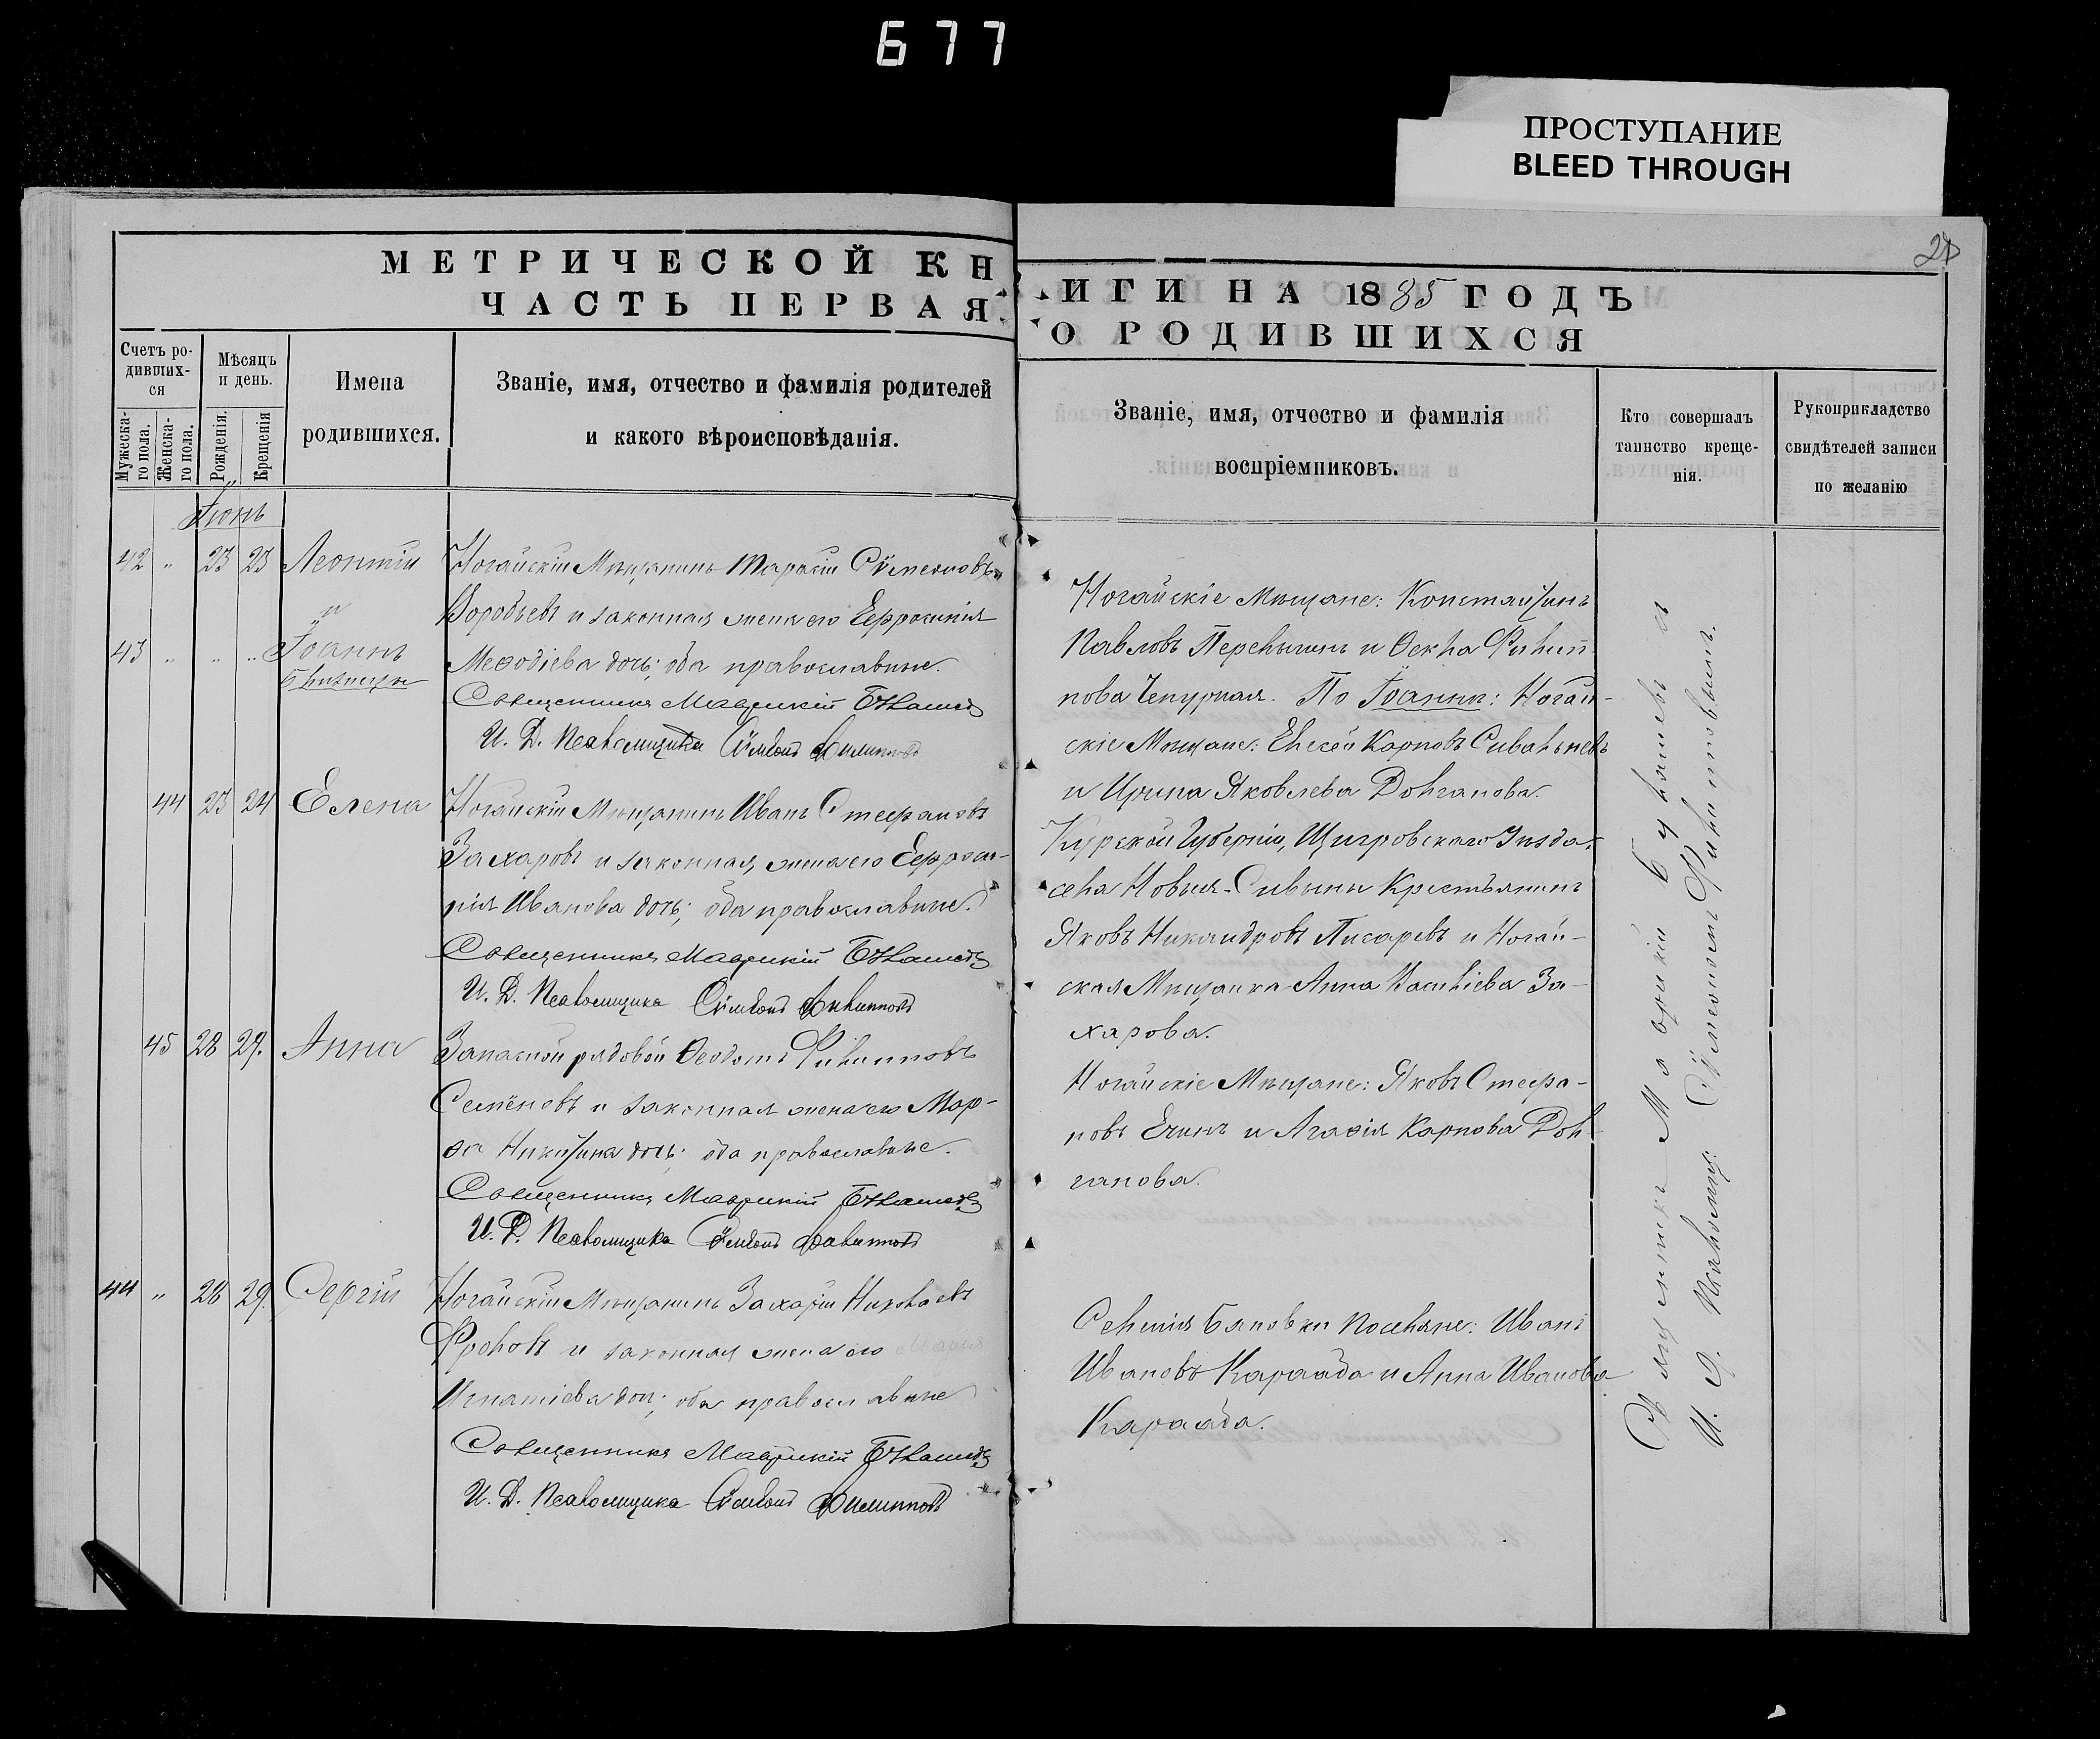 677
ПРОСТУПАНИЕ
BLEED THROUGH
27
МЕТРИЧЕСКОЙ КНИГИ НА 1885 ГОДЪ
ЧАСТЬ ПЕРВАЯ О РОДИВШИХСЯ
Счетъ родивших-ся
Мужеска-го пола.
Женска-го пола.
Мѣсяцъ и день.
Рожденія.
Крещенія
Имена родившихся.
Званіе, имя, отчество и фамилія родителей
и какого вѣроисповѣданія.
Званіе, имя, отчество и фамилія
воспріемниковъ.
Кто совершалъ
таинство креще-
нія.
Рукоприкладство
свидѣтелей записи
по желанію
Іюнь
42 " 23 23 Леонтій
и
43 " " " Іоаннъ
близнецы
Ногайскій Мѣщанинъ Тарасій Сѵмеоновъ
Воробьевъ и законная жена его Евфросинія
Меѳодіева дочь; оба православные.
Священникъ Маврикій
И. Д. Псаломщика Сѵмеонъ Филипповъ
Ногайскіе Мѣщане: Константинъ
Павловъ и Ѳекла Филип-
пова Чепурная. По Іоанну: Ногай-
скіе Мѣщане: Елисей Карповъ
и Ирина Яковлева Долганова.
44 23 24 Елена
Ногайскій Мѣщанинъ Иванъ Стефановъ
Захаровъ и законная жена его Евфроси-
нія Иванова дочь; оба православные.
Священникъ Маврикій
И. Д. Псаломщика Сѵмеонъ Филипповъ
Курской Губерніи, Щигровскаго Уѣзда,
села Новыя-Савины Крестьянинъ
Яковъ Никандровъ Писаревъ и Ногай-
ская Мѣщанка Анна Васильева За-
харова.
45 28 29. Анна
Запасной рядовой Ѳеодотъ Филипповъ
Семёновъ и законная жена его Мар-
ѳа Никитина дочь; оба православные.
Священникъ Маврикій
И. Д. Псаломщика Сѵмеонъ Филипповъ
Ногайскіе Мѣщане: Яковъ Стефа-
новъ Ечинъ и Агаѳія Карпова Дол-
ганова.
44 " 28 29. Сергій
Ногайскій Мѣщанинъ Захарій Николаевъ
Фроловъ и законная жена его Марія
Игнатіева дочь; оба православные
Священникъ Маврикій
И. Д. Псаломщика Сѵмеонъ Филипповъ
Селенія Бановки Поселяне: Иванъ
Ивановъ Караабa и Анна Иванова
Карааба.
Священникъ Маврикій
И. Д. Псаломщ. Сѵмеонъ Филипповъ.